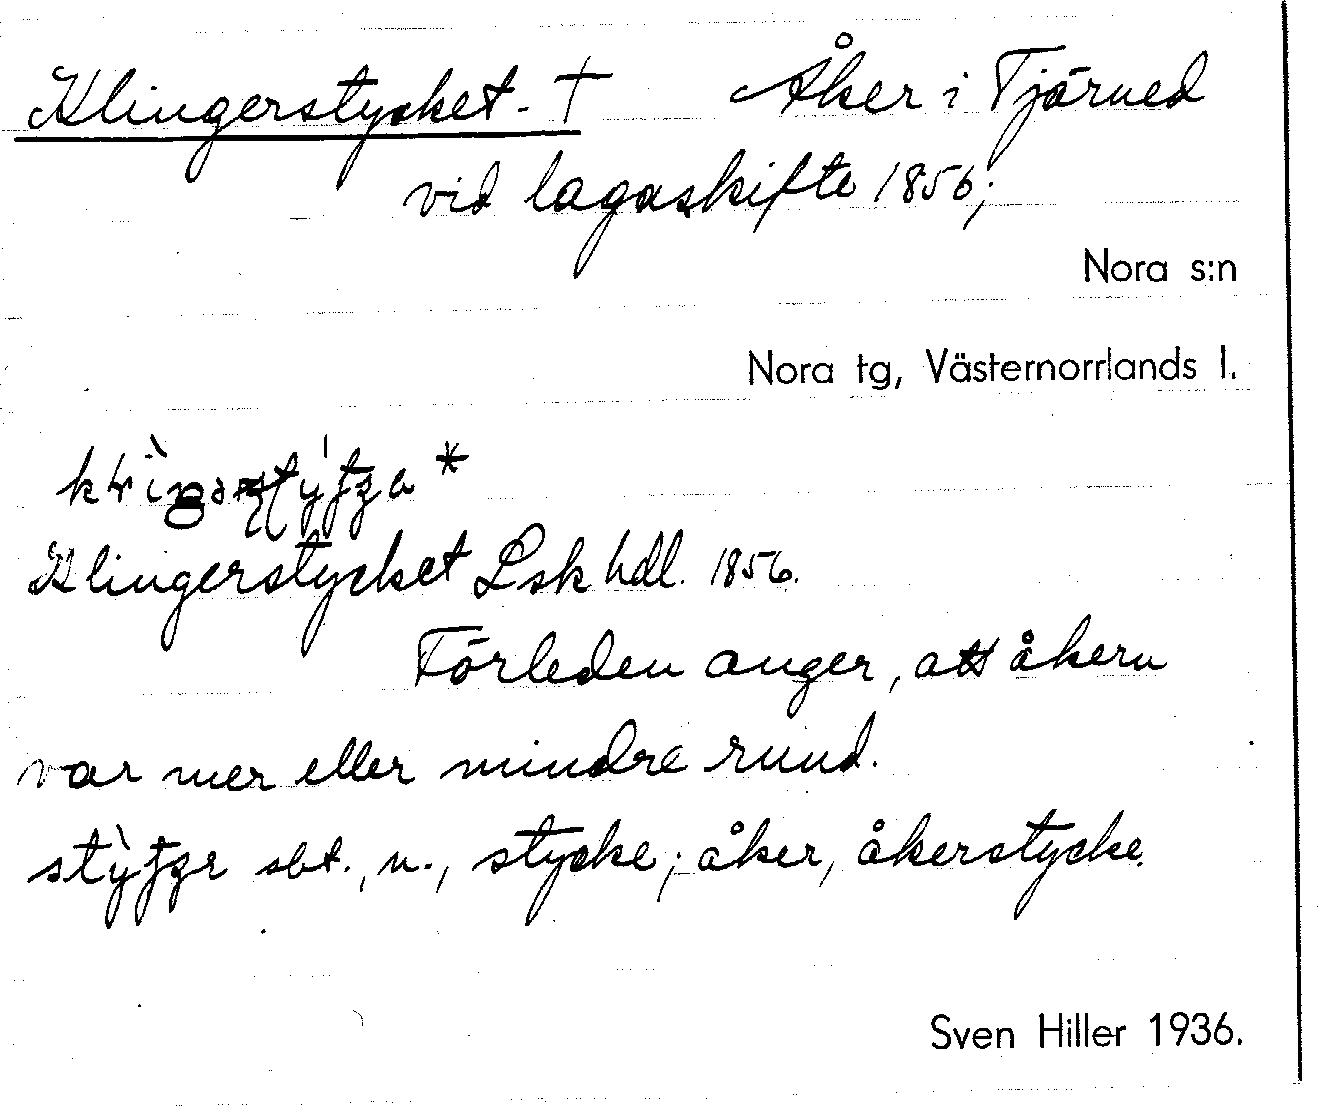 Klingerstycket- † Åker i Tjärned
vid lagaskifte 1856;
Nora s:n
Nora tg, Västernorrlands l.
Klingerstycket Lsk hdl. 1856.
Förleden anger, att åkern
var mer eller mindre rund.
sbt., n., stycke; åker, åkerstycke.
Sven Hiller 1936.